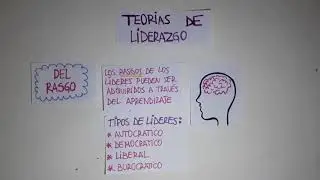 TEORÍAS DE
LIDERAZGO
DEL
RASGO
LOS RASGOS DE LOS
LÍDERES PUEDEN SER
ADQUIRIDOS A TRAVÉS
DEL APRENDIZAJE
TIPOS DE LÍDERES:
* AUTOCRÁTICO
* DEMÓCRATICO
* LIBERAL
* BUROCRÁTICO